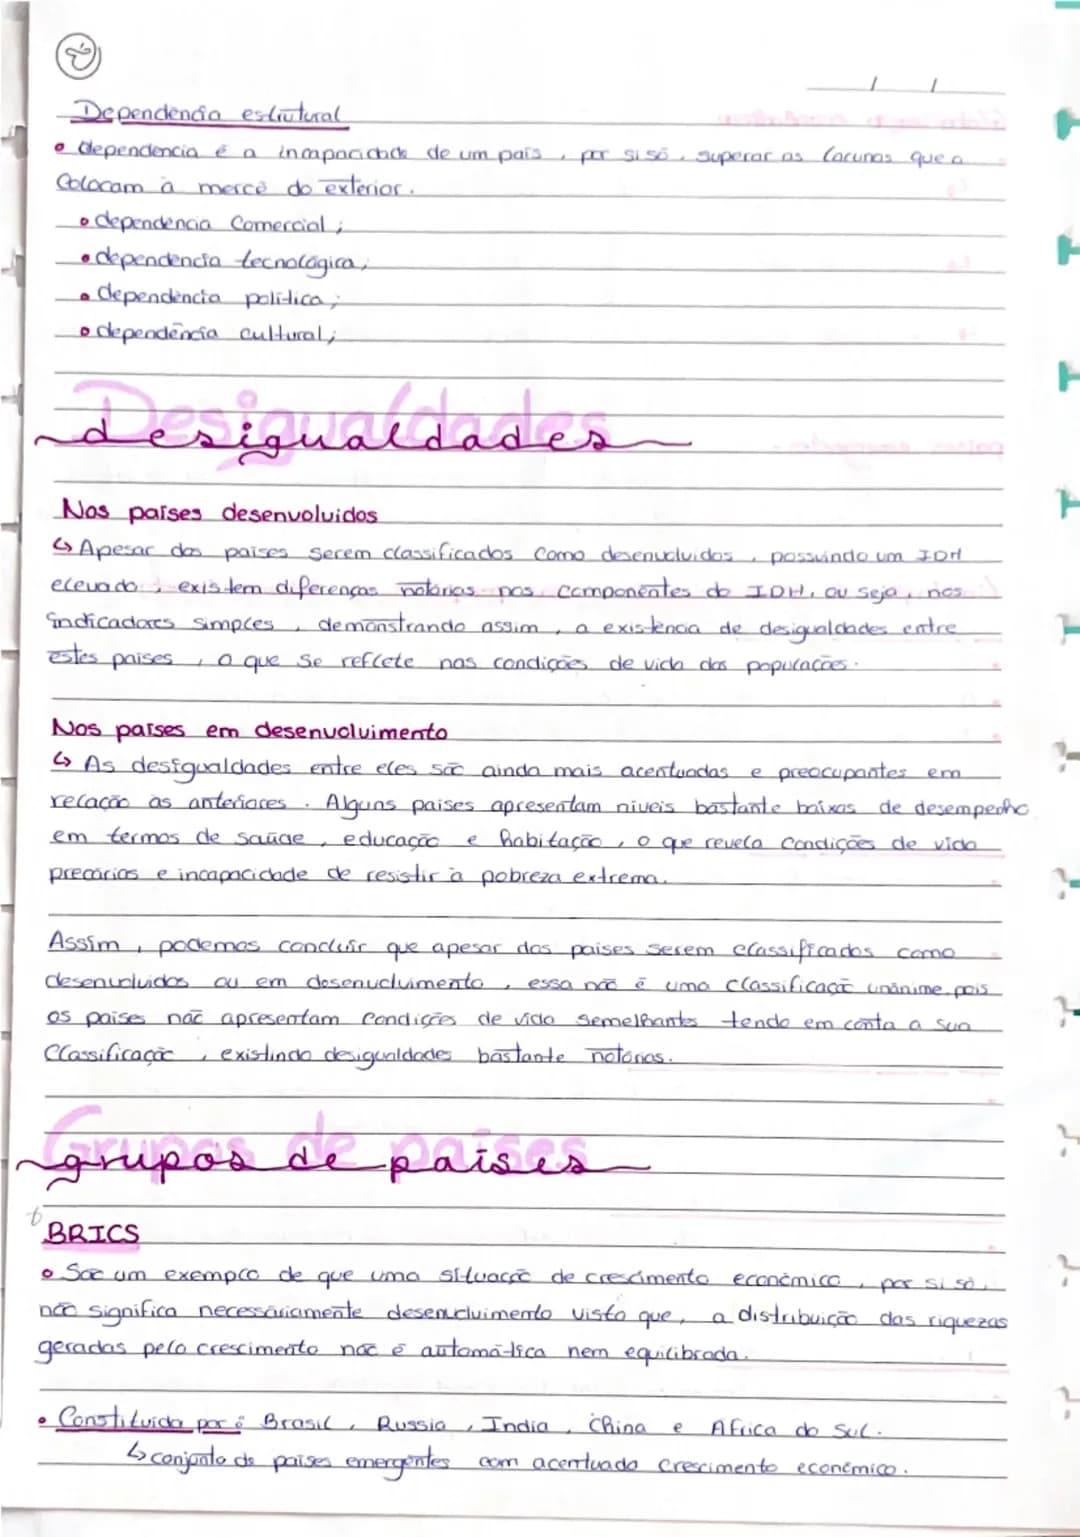 Dependência estrutural
• dependencia é a incapacidade de um país, por si só, superar as lacunas que a
Colocam à mercê do exterior.
• dependência Comercial;
• dependência tecnológica;
• dependência política;
• dependência cultural;
Desigualdades
desigualdades
Nos países desenvolvidos
↳ Apesar dos países serem classificados Como desenvolvidos, possuindo um IDH
elevado, existem diferenças notórias nos componentes do IDH, ou seja, nos
indicadores simples, demonstrando assim, a existência de desigualdades entre
estes países, o que se reflete nas condições de vida das populações.
Nos países em desenvolvimento
↳ As desigualdades entre eles são ainda mais acentuadas e preocupantes em
relação às anteriores. Alguns países apresentam níveis bastante baixos de desempenho
em termos de saúde, educação e habitação, o que revela condições de vida
precárias e incapacidade de resistir à pobreza extrema.
Assim, podemos concluir que apesar dos países serem classificados como
desenvolvidos ou em desenvolvimento, essa não é uma classificação unânime pois
os países não apresentam condições de vida semelhantes tendo em conta a sua
Classificação, existindo desigualdades bastante notórias.
Grupos de países
grupos de países
BRICS
• São um exemplo de que uma situação de crescimento económico, por si só,
não significa necessáriamente desenvolvimento visto que, a distribuição das riquezas
geradas pelo crescimento não é automática nem equilibrada.
• Constituída por: Brasil, Russia, India, China e Africa do Sul.
↳ conjunto de países emergentes com acentuado crescimento económico.